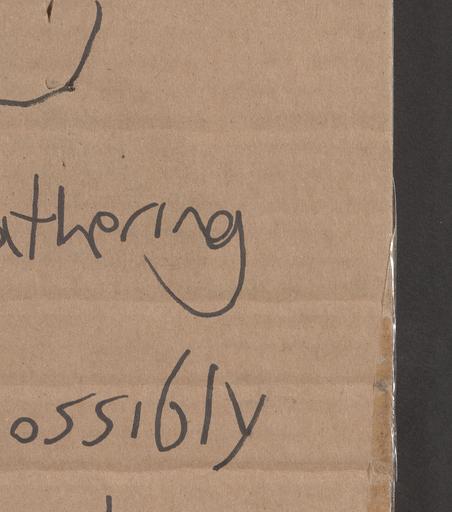 athering
ossibly